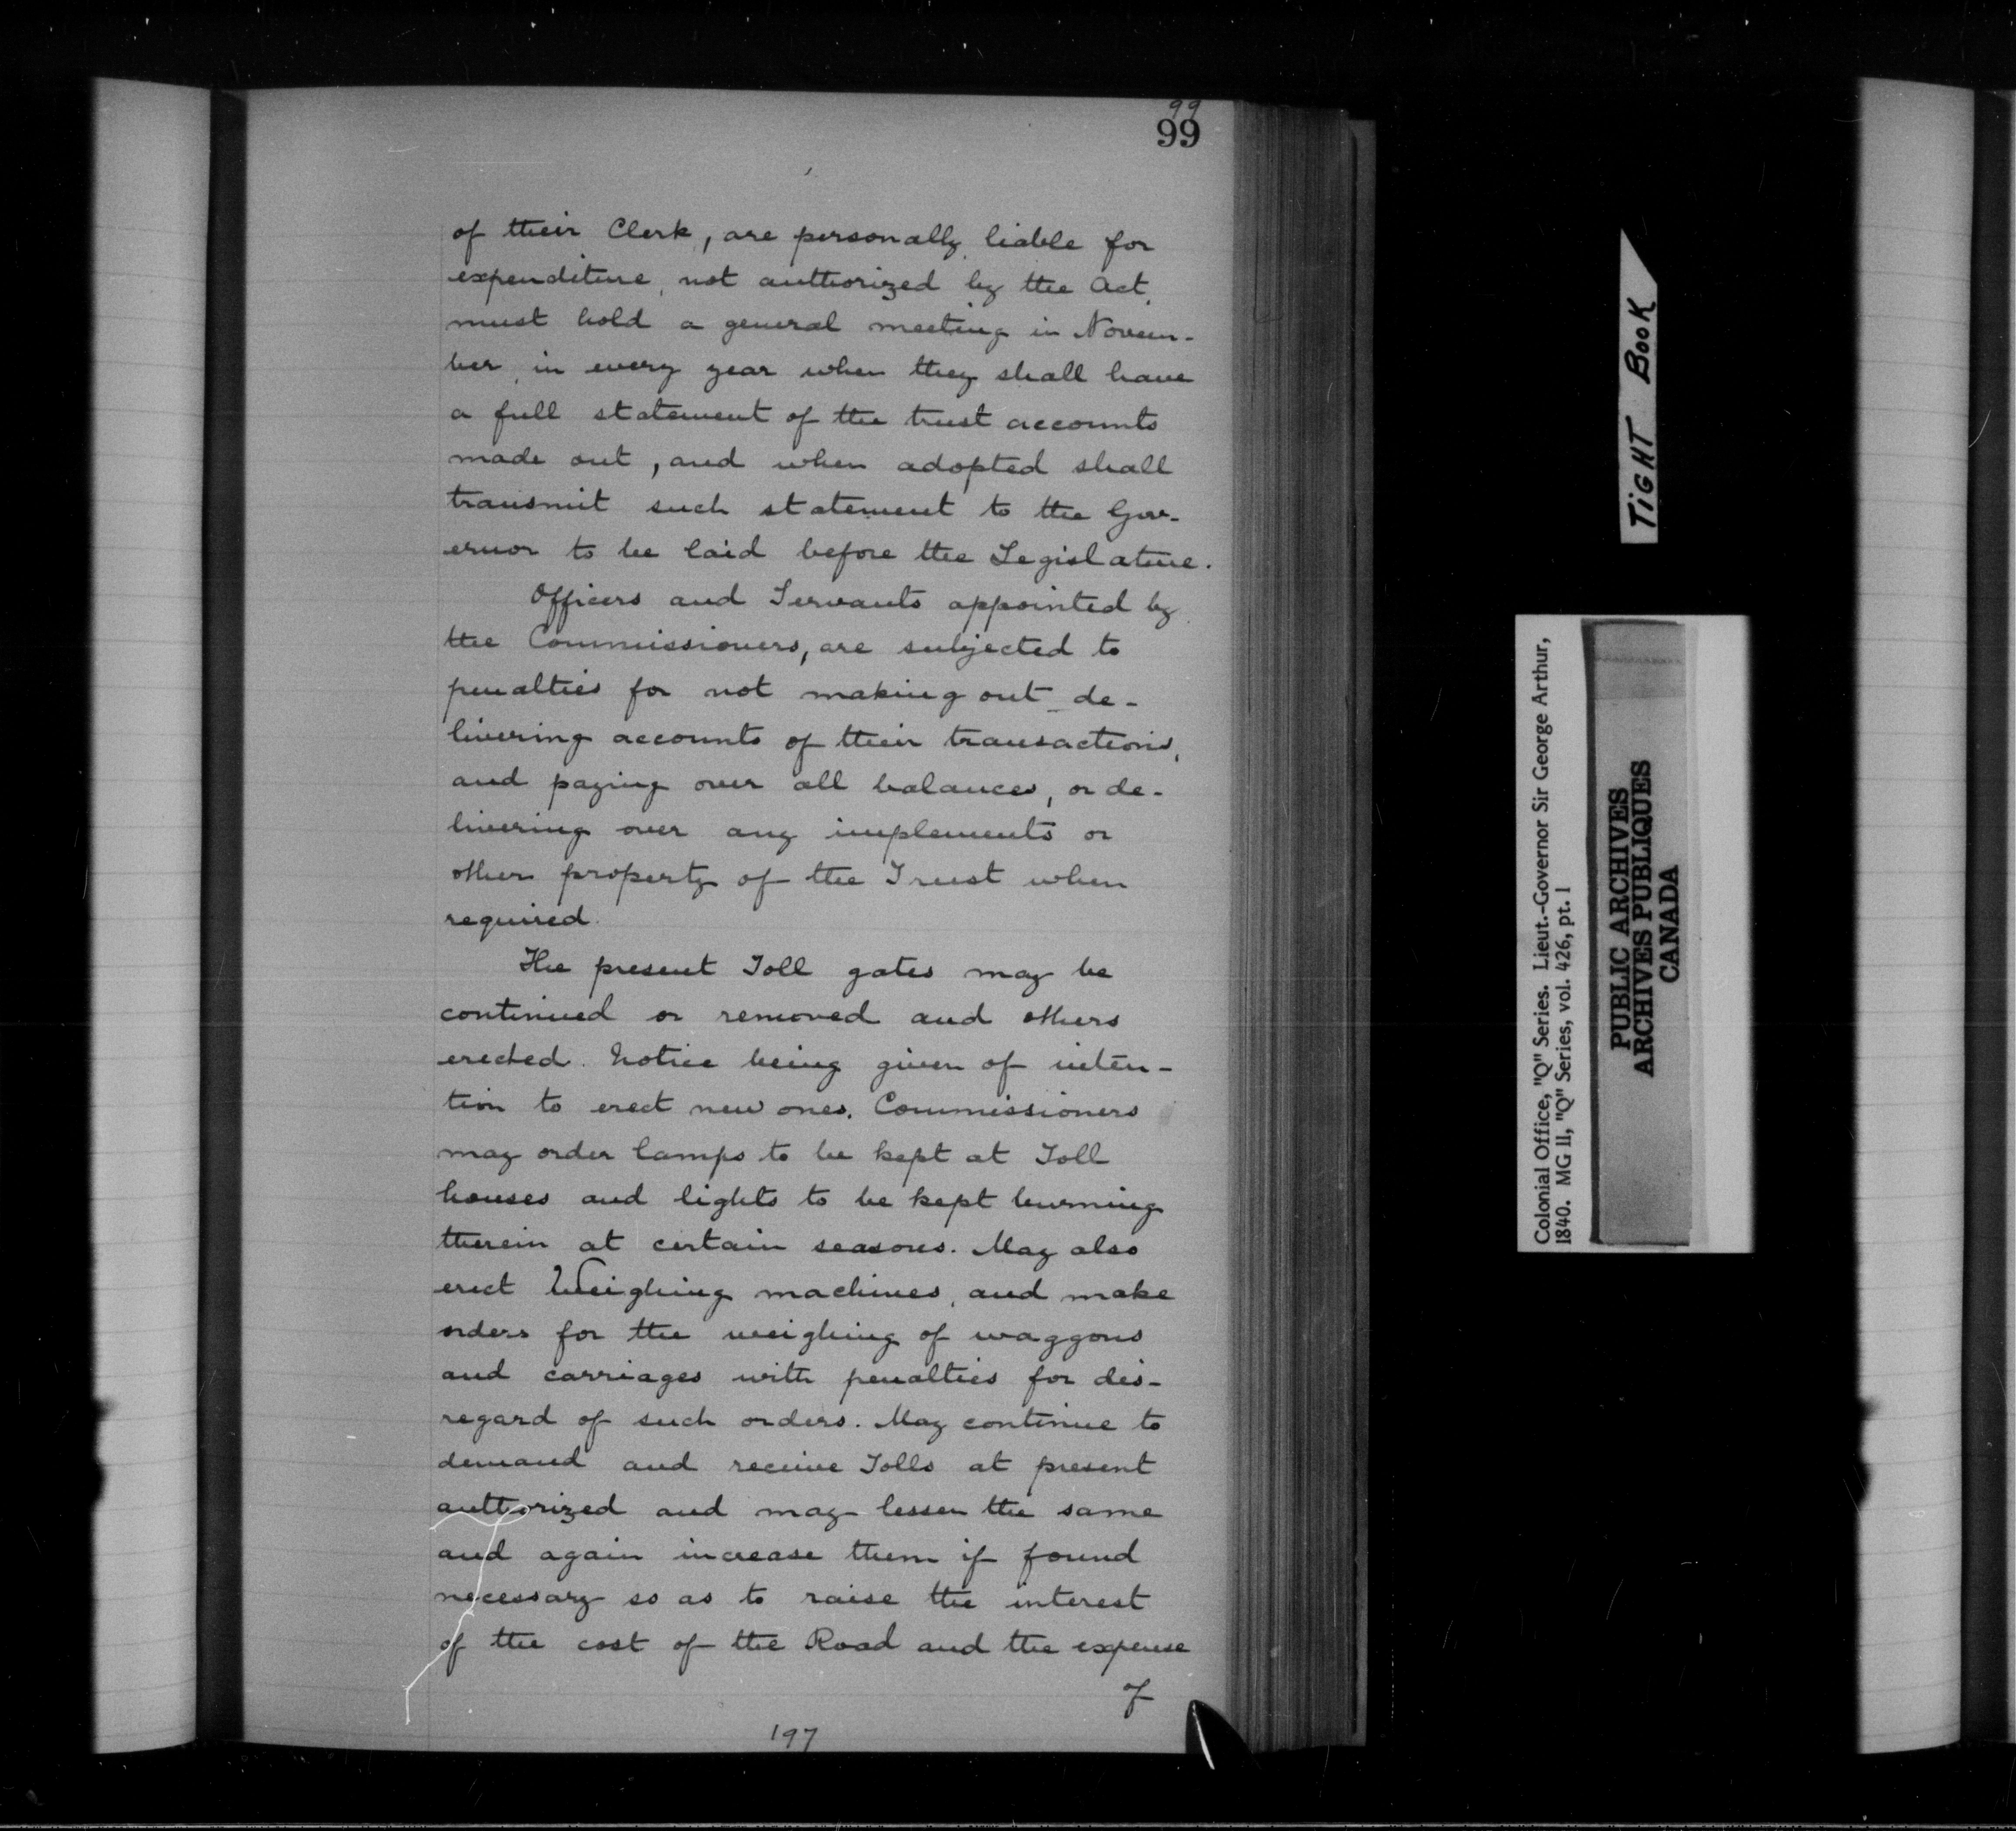 99
99
of their Clerk, are personally liable for
expenditure, not authorized by the Act,
must hold a general meeting in Novem-
ber, in every year when they shall have
a full statement of the trust accounts
made out, and when adopted shall
transmit such statement to the Gov-
ernor to be laid before the Legislature.
Officers and Servants appointed by
the Commissioners, are subjected to
penalties for not making out de-
livering accounts of their transactions,
and paying over all balances, or de-
livering over any implements or
other property of the Trust when
required.
The present Toll gates may be
continued or removed and others
erected. Notice being given of inten-
tion to erect new ones. Commissioners
may order lamps to be kept at Toll
houses and lights to be kept burning
therein at certain seasons. May also
erect Weighing machines, and make
orders for the weighing of waggons
and carriages with penalties for dis-
regard of such orders. May continue to
demand and receive Tolls at present
authorized and may lessen the same
and again increase them if found
necessary so as to raise the interest
of the cost of the Road and the expense
of
197
TIGHT BOOK
Colonial Office, "Q" Series. Lieut.-Governor Sir George Arthur,
1840. MG 11, "Q" Series, vol. 426, pt. 1
PUBLIC ARCHIVES
ARCHIVES PUBLIQUES
CANADA